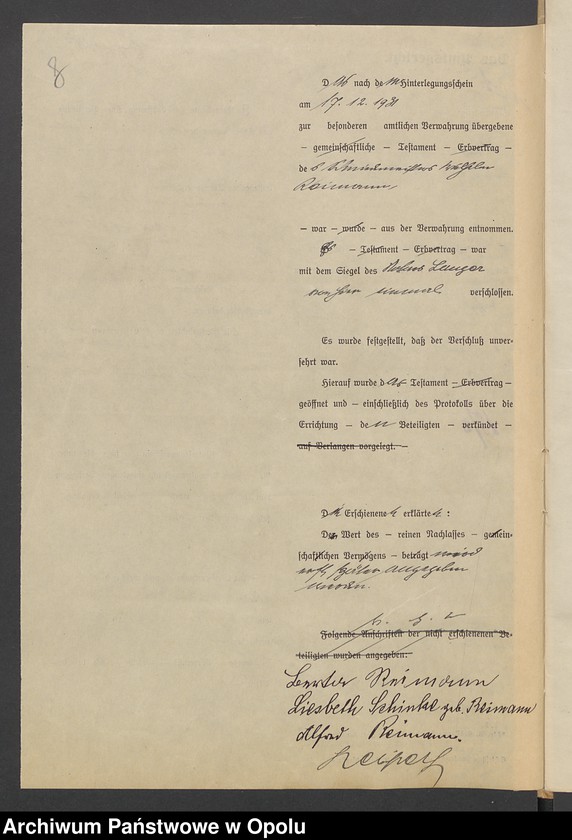 8
Das nach dem Hinterlegungsschein
am 17. 12. 1921
zur besonderen amtlichen Verwahrung übergebene
– gemeinschaftliche – Testament – Erbvertrag –
des Schmiedemeisters Wilhelm
Reimann
– war – wurde – aus der Verwahrung entnommen.
– Testament – Erbvertrag – war
mit dem Siegel des Notars Langer
einmal verschlossen.
Es wurde festgestellt, daß der Verschluß unver-
sehrt war.
Hierauf wurde das Testament – Erbvertrag –
geöffnet und – einschließlich des Protokolls über die
Errichtung – den Beteiligten – verkündet –
auf Verlangen vorgelegt. –
Die Erschienenen erklärten:
Der Wert des – reinen Nachlasses – gemein-
schaftlichen Vermögens – beträgt wird
erst später angegeben
werden.
v. g. u
Folgende Anschriften der nicht erschienenen Be-
teiligten wurden angegeben:
Berta Reimann
Liesbeth Schinke geb. Reimann
Alfred Reimann.
Archiwum Państwowe w Opolu